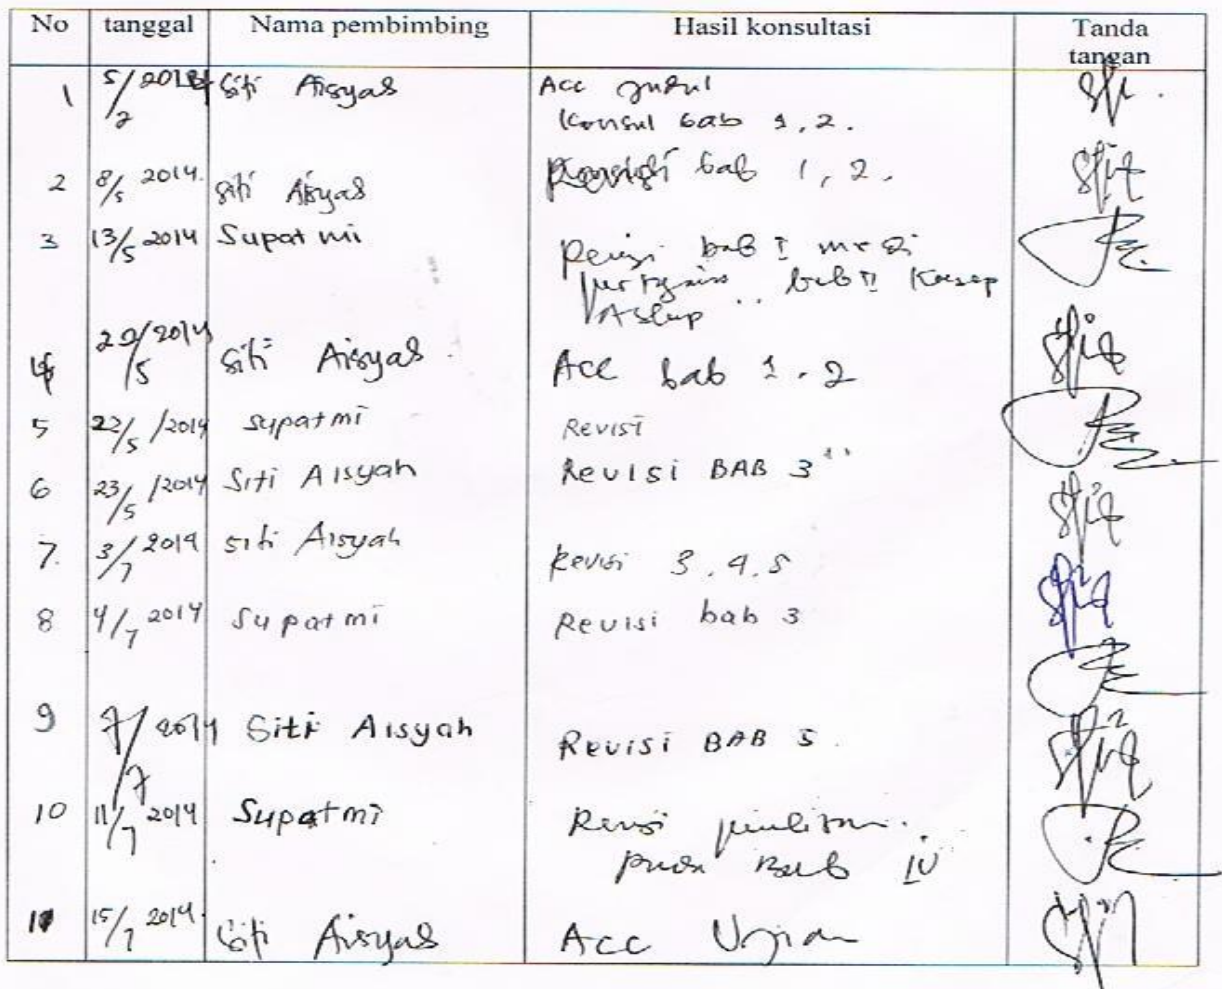 No tanggal Nama pembimbing Hasil konsultasi Tanda tangan
1 5/2 2014 Siti Aisyah Acc Judul
Konsul bab 1, 2.
2 8/5 2014. Siti Aisyah bab 1, 2.
3 13/5 2014 Supatmi Revisi bab I
bab II Konsep
Askep
4 20/5 2014 Siti Aisyah Acc bab 1. 2
5 22/5 /2014 Supatmi Revisi
6 23/5 /2014 Siti Aisyah Revisi BAB 3
7. 3/7 2014 Siti Aisyah Revisi 3. 4. 5
8 4/7 2014 Supatmi Revisi bab 3
9 7/7 2014 Siti Aisyah Revisi BAB 5.
10 11/7 2014 Supatmi Revisi penulisan
pada Bab IV
11 15/7 2014. Siti Aisyah Acc Ujian